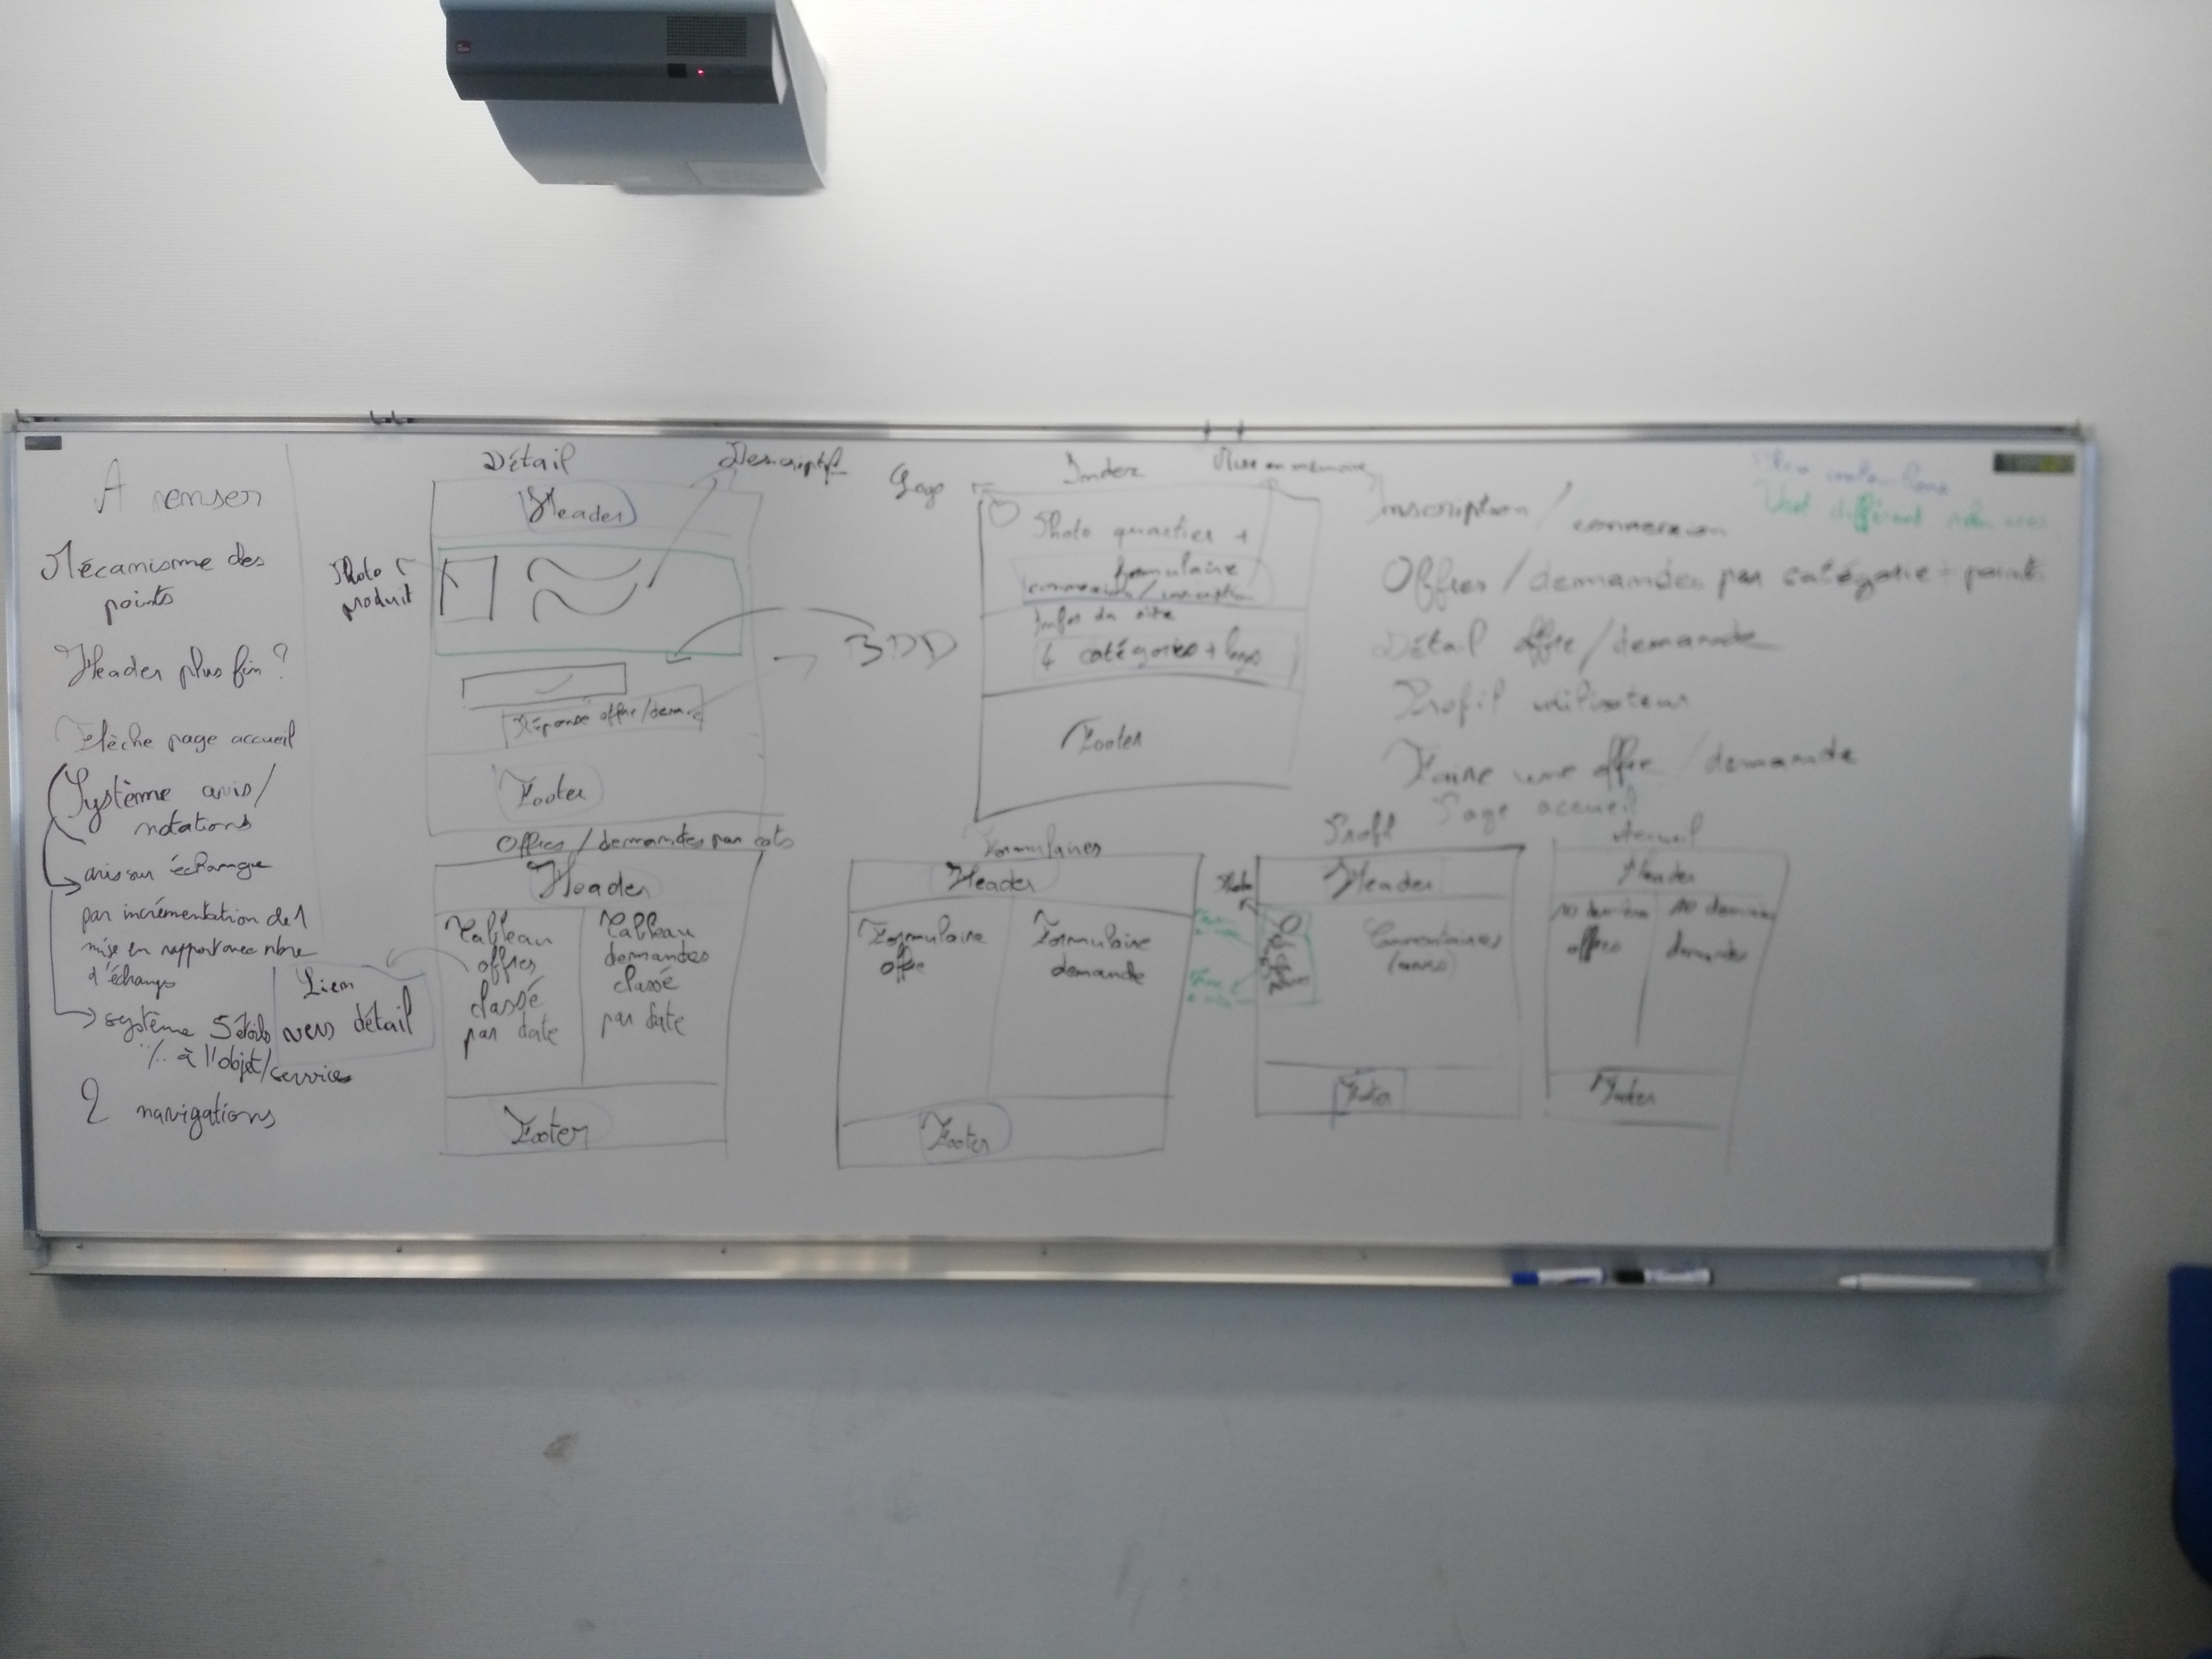 A penser
Mécanisme des
points
Header plus fin ?
Flèche page accueil
Système avis/
notations
avis sur échange
par incrémentation de 1
mise en rapport avec nbre
d'échange
système 5 étoiles
% à l'objet/service
2 navigations
Détail
Descriptif
Header
Photo
produit
Réponse offre/demande
Footer
BDD
Offres / demandes par cats
Header
Tableau
offres
classé
par date
Tableau
demandes
classé
par date
Lien
vers détail
Footer
Logo
Index
Mise en mémoire
Photo quartier +
formulaire
connexion / inscription
Infos du site
4 catégories + logo
Footer
Formulaires
Header
Formulaire
offre
Formulaire
demande
Footer
Inscription / connexion
Offres / demandes par catégorie + points
Détail offre / demande
Profil utilisateur
Faire une offre / demande
Page accueil
Profil
Header
Photo
Commentaires
(avis)
Footer
Accueil
Header
10 dernières
offres
10 dernières
demandes
Footer